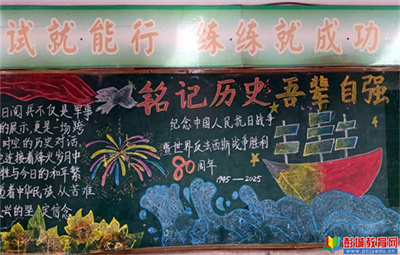 试就能行 练练就成功
铭记历史 吾辈自强
日阅兵不仅是军事
的展示,更是一场跨
时空的历史对话,
它连接着烽火岁月中
牲与今日的和平繁
着中华民族从苦难
兴的坚定信念
纪念中国人民抗日战争
暨世界反法西斯战争胜利
80周年
1945—2025
彭城教育网
www.pcjyedu.cn